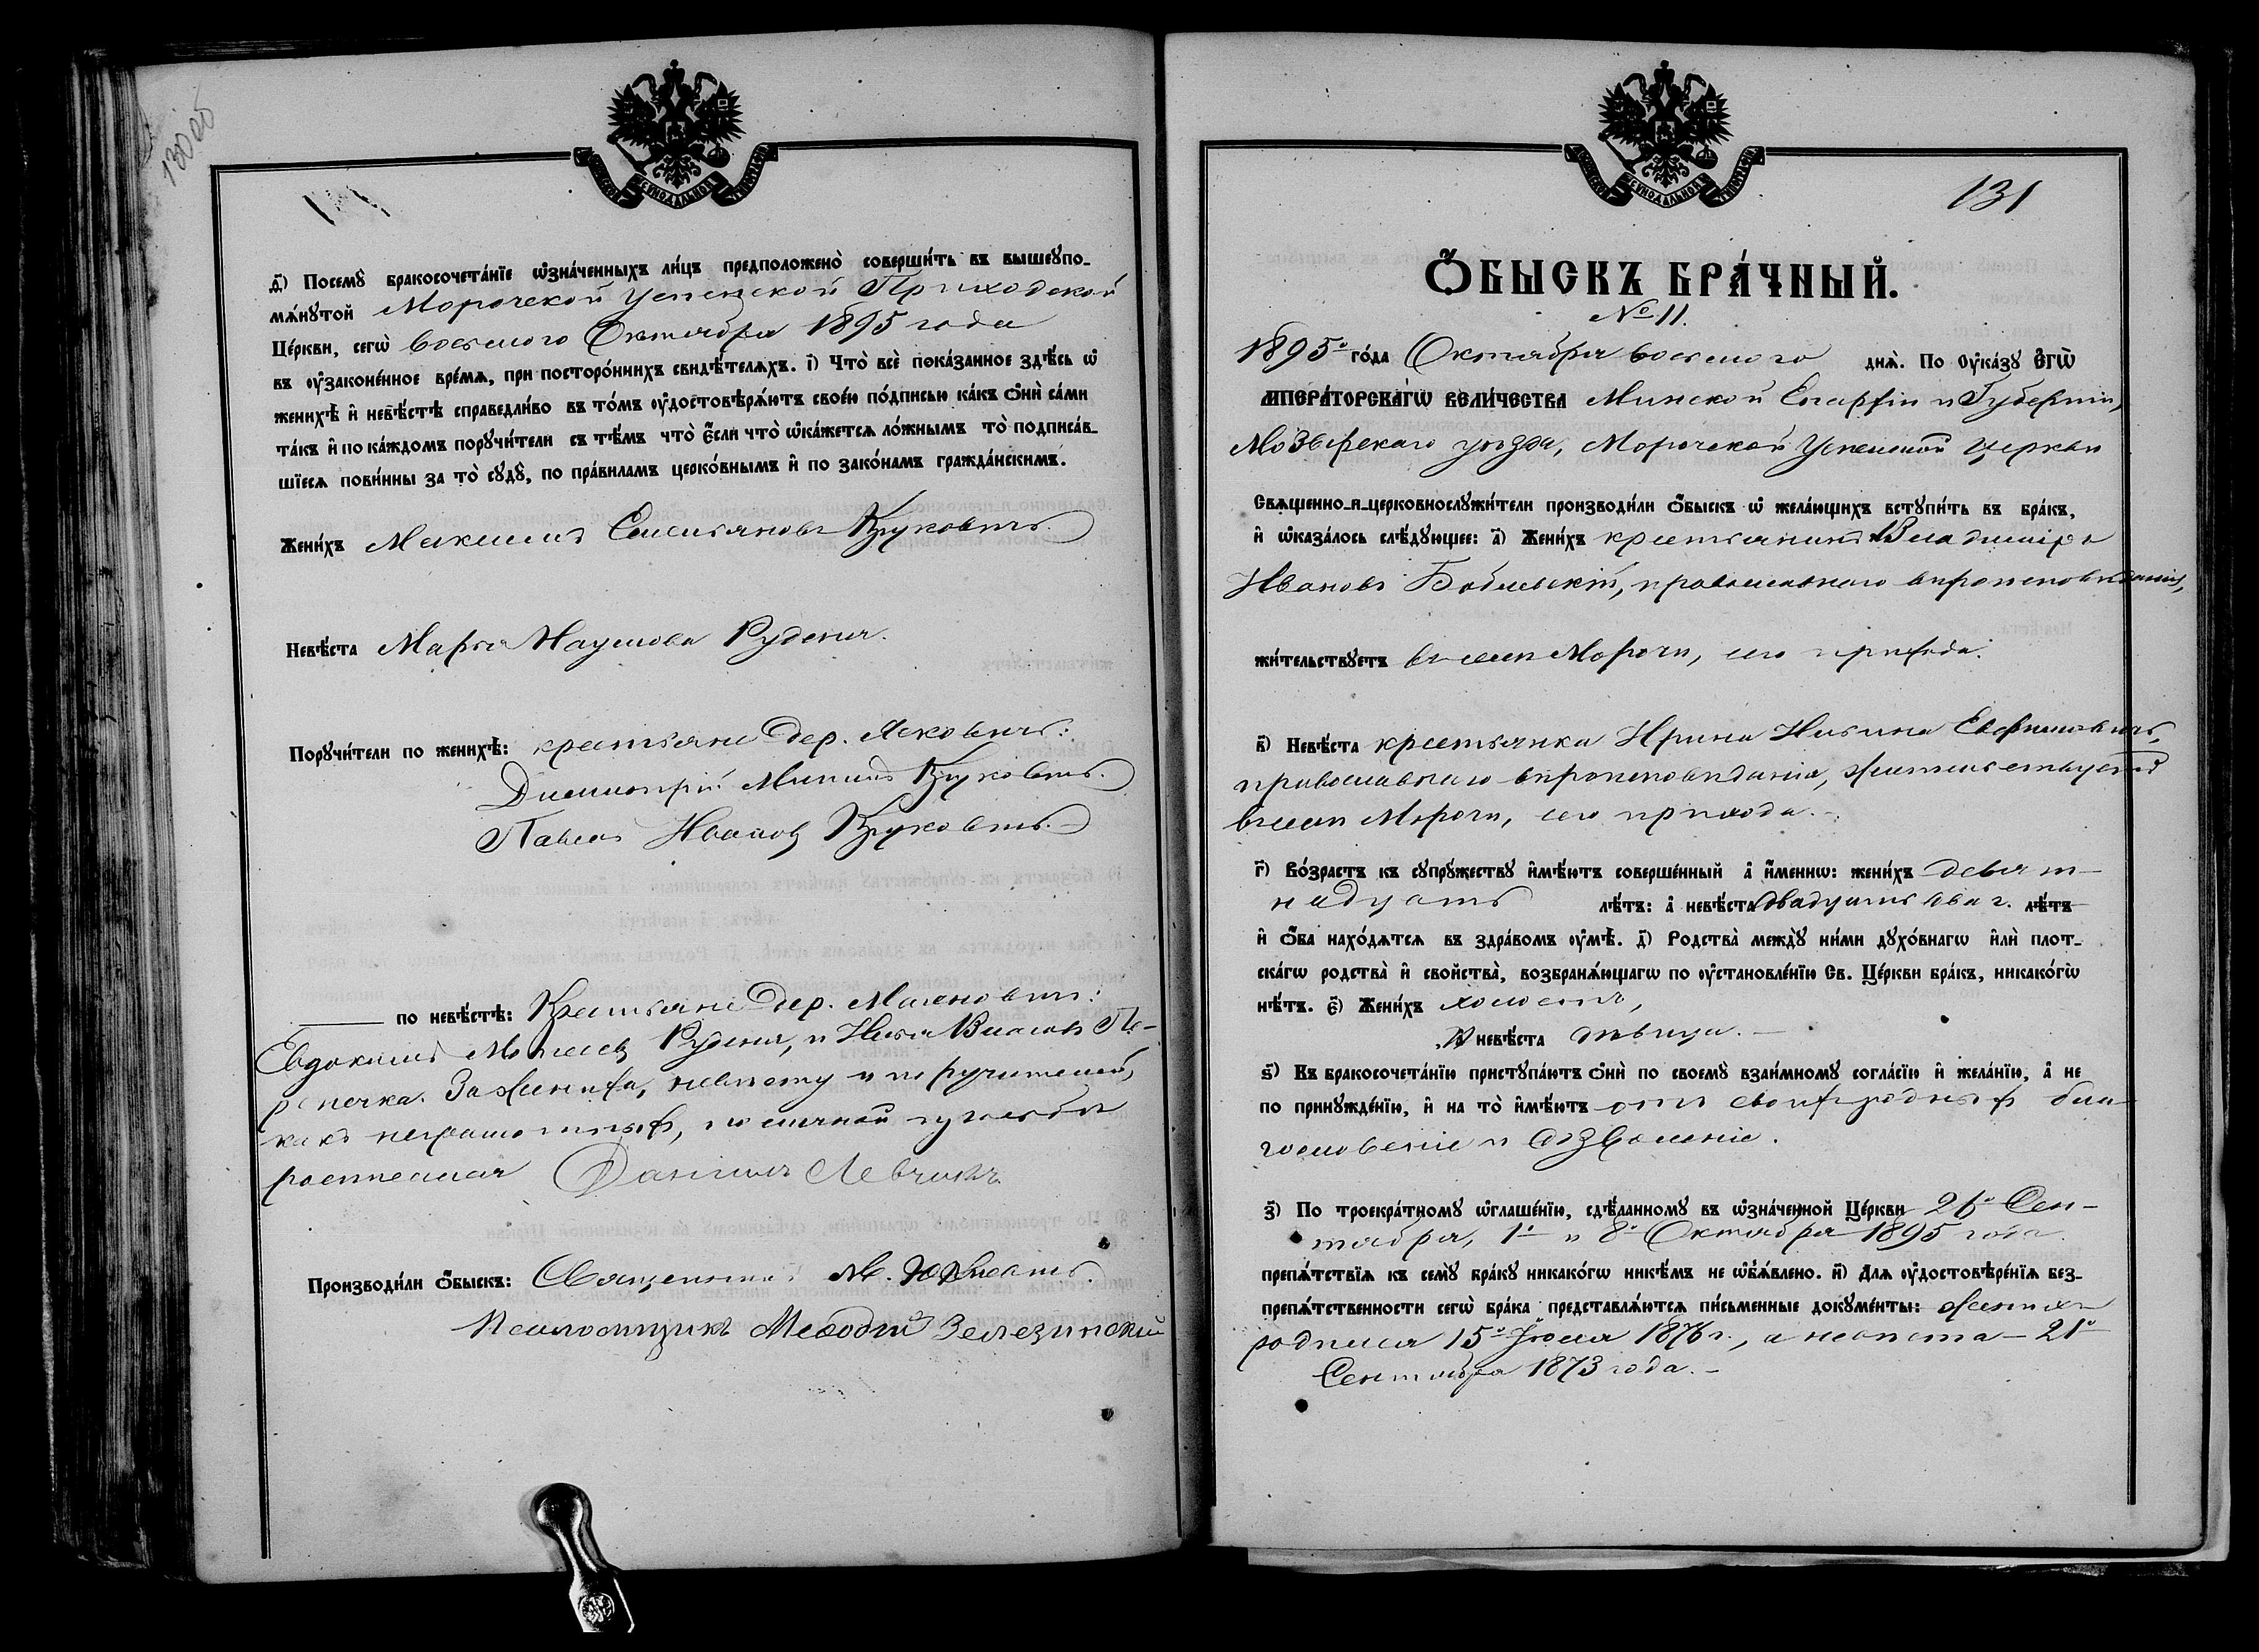 130 об
д҃) Посемꙋ̀ бракосочета́нїе ѡ҆зна́ченныхъ ли́цъ предположено̀ соверши́ть въ вышеꙋпо-
мѧ́нꙋтой Морочской Успенской Приходской
Це́ркви, сегѡ̀ восьмого Октября 1895 года
въ ᲂу҆зако́ненное вре́мѧ, при посторо́ннихъ свидѣ́телѧхъ. і҃) Что̀ всѐ пока́занное здѣ́сь ѡ҆
женихѣ̀ и҆ невѣ́стѣ справедли́во въ то́мъ ᲂу҆достовѣрѧ́ютъ свое́ю по́дписью ка́къ ѻ҆нѝ са́ми
та́къ и҆ по ка́ждомъ порꙋчи́тели съ тѣ́мъ что̀ є҆́сли что̀ ѡ҆ка́жетсѧ ло́жнымъ то̀ подписа́в-
шїесѧ пови́нны за то̀ сꙋдꙋ̀, по пра́виламъ церко́внымъ и҆ по зако́намъ гражда́нскимъ.
Жени́хъ Максимъ Емельяновъ Жуковецъ
Невѣ́ста Марья Наумова Руденя.
Порꙋчи́тели по женихѣ̀: крестьяне дер. Ясковичъ:
Димитрій Мининъ
Павелъ Ивановъ
по невѣ́стѣ: Крестьяне дер.
Евдокимъ Моисеевъ Руденя, и Илья Власовъ Пе-
репечка. За жениха, невѣсту и поручителей,
какъ неграмотныхъ, по личной просьбѣ
росписался Даніилъ Левчукъ.
Производи́ли ѻ҆́быскъ: Священникъ М.
Псаломщикъ Меѳодій Зелезинскій
131
Ѻ҆́БЫСКЪ БРА́ЧНЫЙ.
№ 11.
1895го го́да Октября восьмого днѧ̀. По Ѹ҆ка́зꙋ Є҆гѡ̀
И҆МПЕРА́ТОРСКАГѠ ВЕЛИ́ЧЕСТВА Минской Епархіи и Губерніи,
Мозырскаго уѣзда, Морочской Успенской церкви
Свѧщенно-и-церковнослꙋжи́тели производи́ли ѻ҆́быскъ ѡ҆ жела́ющихъ встꙋпи́ть въ бра́къ,
и҆ ѡ҆каза́лось слѣ́дꙋющее: а҃) Жени́хъ крестьянинъ Владиміръ
Ивановъ Боблевскій, православнаго вѣроисповѣданія,
жи́тельствꙋетъ въ селѣ Морочи, сего прихода.
в҃) Невѣ́ста крестьянка Ирина Ильина
православнаго вѣроисповѣданія, жительствуетъ
въ селѣ Морочи, сего прихода.
г҃) Во́зрастъ къ сꙋпрꙋ́жествꙋ и҆мѣ́ютъ соверше́нный а҆ и҆́меннѡ: жени́хъ девят-
надцать лѣ́тъ: а҆ невѣ́ста двадцать два г. лѣ́тъ
и҆ ѻ҆́ба нахо́дѧтсѧ въ здра́вомъ ᲂу҆мѣ̀. д҃) Родства̀ междꙋ̀ ни́ми дꙋхо́внагѡ и҆лѝ плот-
ска́гѡ родства̀ и҆ свойства̀, возбранѧ́ющагѡ по ᲂу҆становле́нїю Св. Це́ркви бра́къ, никако́гѡ
нѣ́тъ. є҃) Жени́хъ холостъ,
А҆ невѣ́ста дѣвица.
ѕ҃) Къ бракосочета́нїю пристꙋпа́ютъ ѻ҆нѝ по своемꙋ̀ взаи́мномꙋ согла́сїю и҆ жела́нїю, а҆ не
по принꙋжде́нїю, и҆ на то̀ и҆мѣ́ютъ отъ своихъ родныхъ бла-
гословеніе и дозволеніе.
з҃) По троекра́тномꙋ ѡ҆глаше́нїю, сдѣ́ланномꙋ въ ѡ҆зна́ченной Це́ркви 26го Сен-
тября, 1го и 8го Октября 1895 года
препѧ́тствїѧ къ семꙋ̀ бра́кꙋ никако́гѡ никѣ́мъ не ѡ҆б̾ѧ́влено. и҃) Длѧ ᲂу҆достовѣре́нїѧ без-
препѧ́тственности сегѡ̀ бра́ка представлѧ́ютсѧ пи́сьменные докꙋме́нты: Женихъ
родился 15го Іюля 1876 г., а невѣста — 21го
Сентября 1873 года. —